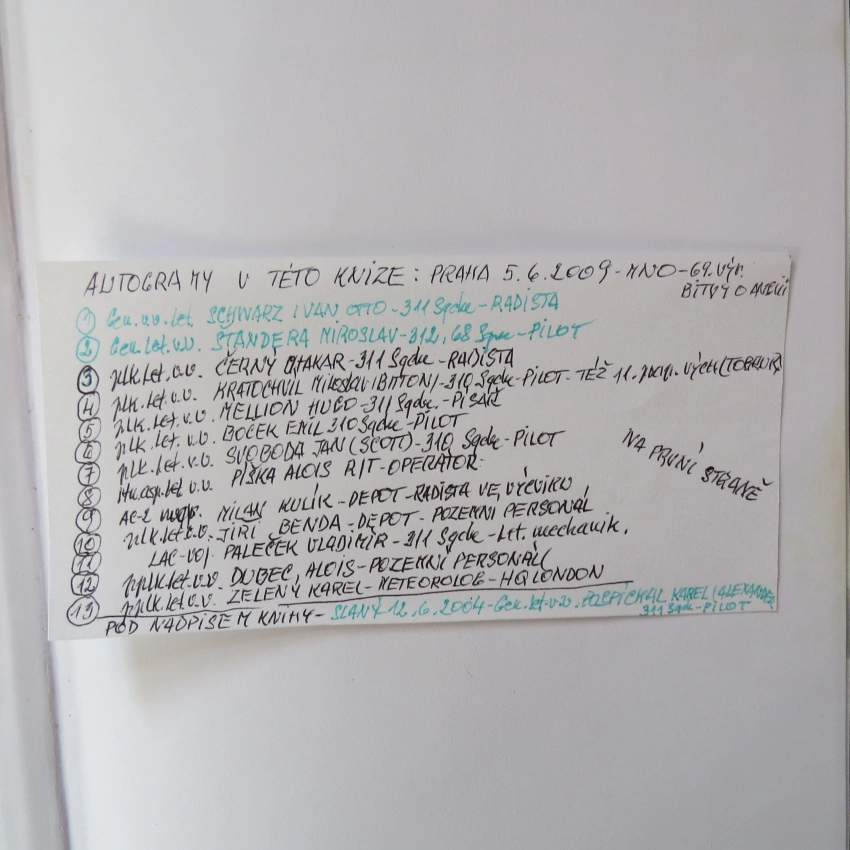 AUTOGRAMY V TÉTO KNIZE: PRAHA 5.6.2009-MNO-69.výr.
BITVY O ANGLII
1 Gen.v.v.let. SCHWARZ IVAN OTTO-311 Sqdn-RADISTA
2 Gen.let.v.v. ŠTANDERA MIROSLAV-312, 68 Sqn-PILOT
3 plk.let.v.v. ČERNÝ OTAKAR-311 Sqdn-RADISTA
4 plk.let.v.v. KRATOCHVÍL Miloslav (BITTON)-310 Sqdn-PILOT-TÉŽ 11. (TOBRUK)
5 plk.let.v.v. MELLION HUGO-311 Sqdn.-PÍSAŘ
6 plk.let.v.v. BOČEK EMIL 310 Sqdn-PILOT
7 plk.let.v.v. SVOBODA JAN (SCOTT)-310 Sqdn-PILOT
8 let v.v. PÍŠKA ALOIS R/T-OPERATOR
NA PRVNÍ STRANĚ
9 AC-2 MILAN KULÍK-DEPOT-RADISTA VE VÝCVIKU
10 plk.let.v.v. JIŘÍ BENDA-DEPOT-POZEMNÍ PERSONÁL
11 LAC-voj. PALEČEK VLADIMÍR-311 Sqdn-let. mechanik.
12 pplk.let.v.v. DUBEC, ALOIS-POZEMNÍ PERSONÁL
13 pplk.let.v.v. ZELENÝ KAREL-METEOROLOG-HQ LONDON
POD NADPISEM KNIHY-SLANÝ 12.6.2004-Gen.let.v.v. POSPÍCHAL KAREL (ALEXANDER)
311 Sqdn-PILOT